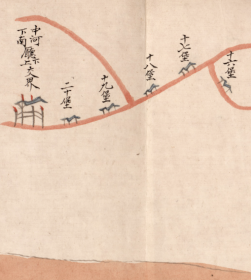 十六堡
十七堡
十八堡
十九堡
二十堡
中河廳上
下南廳上交界